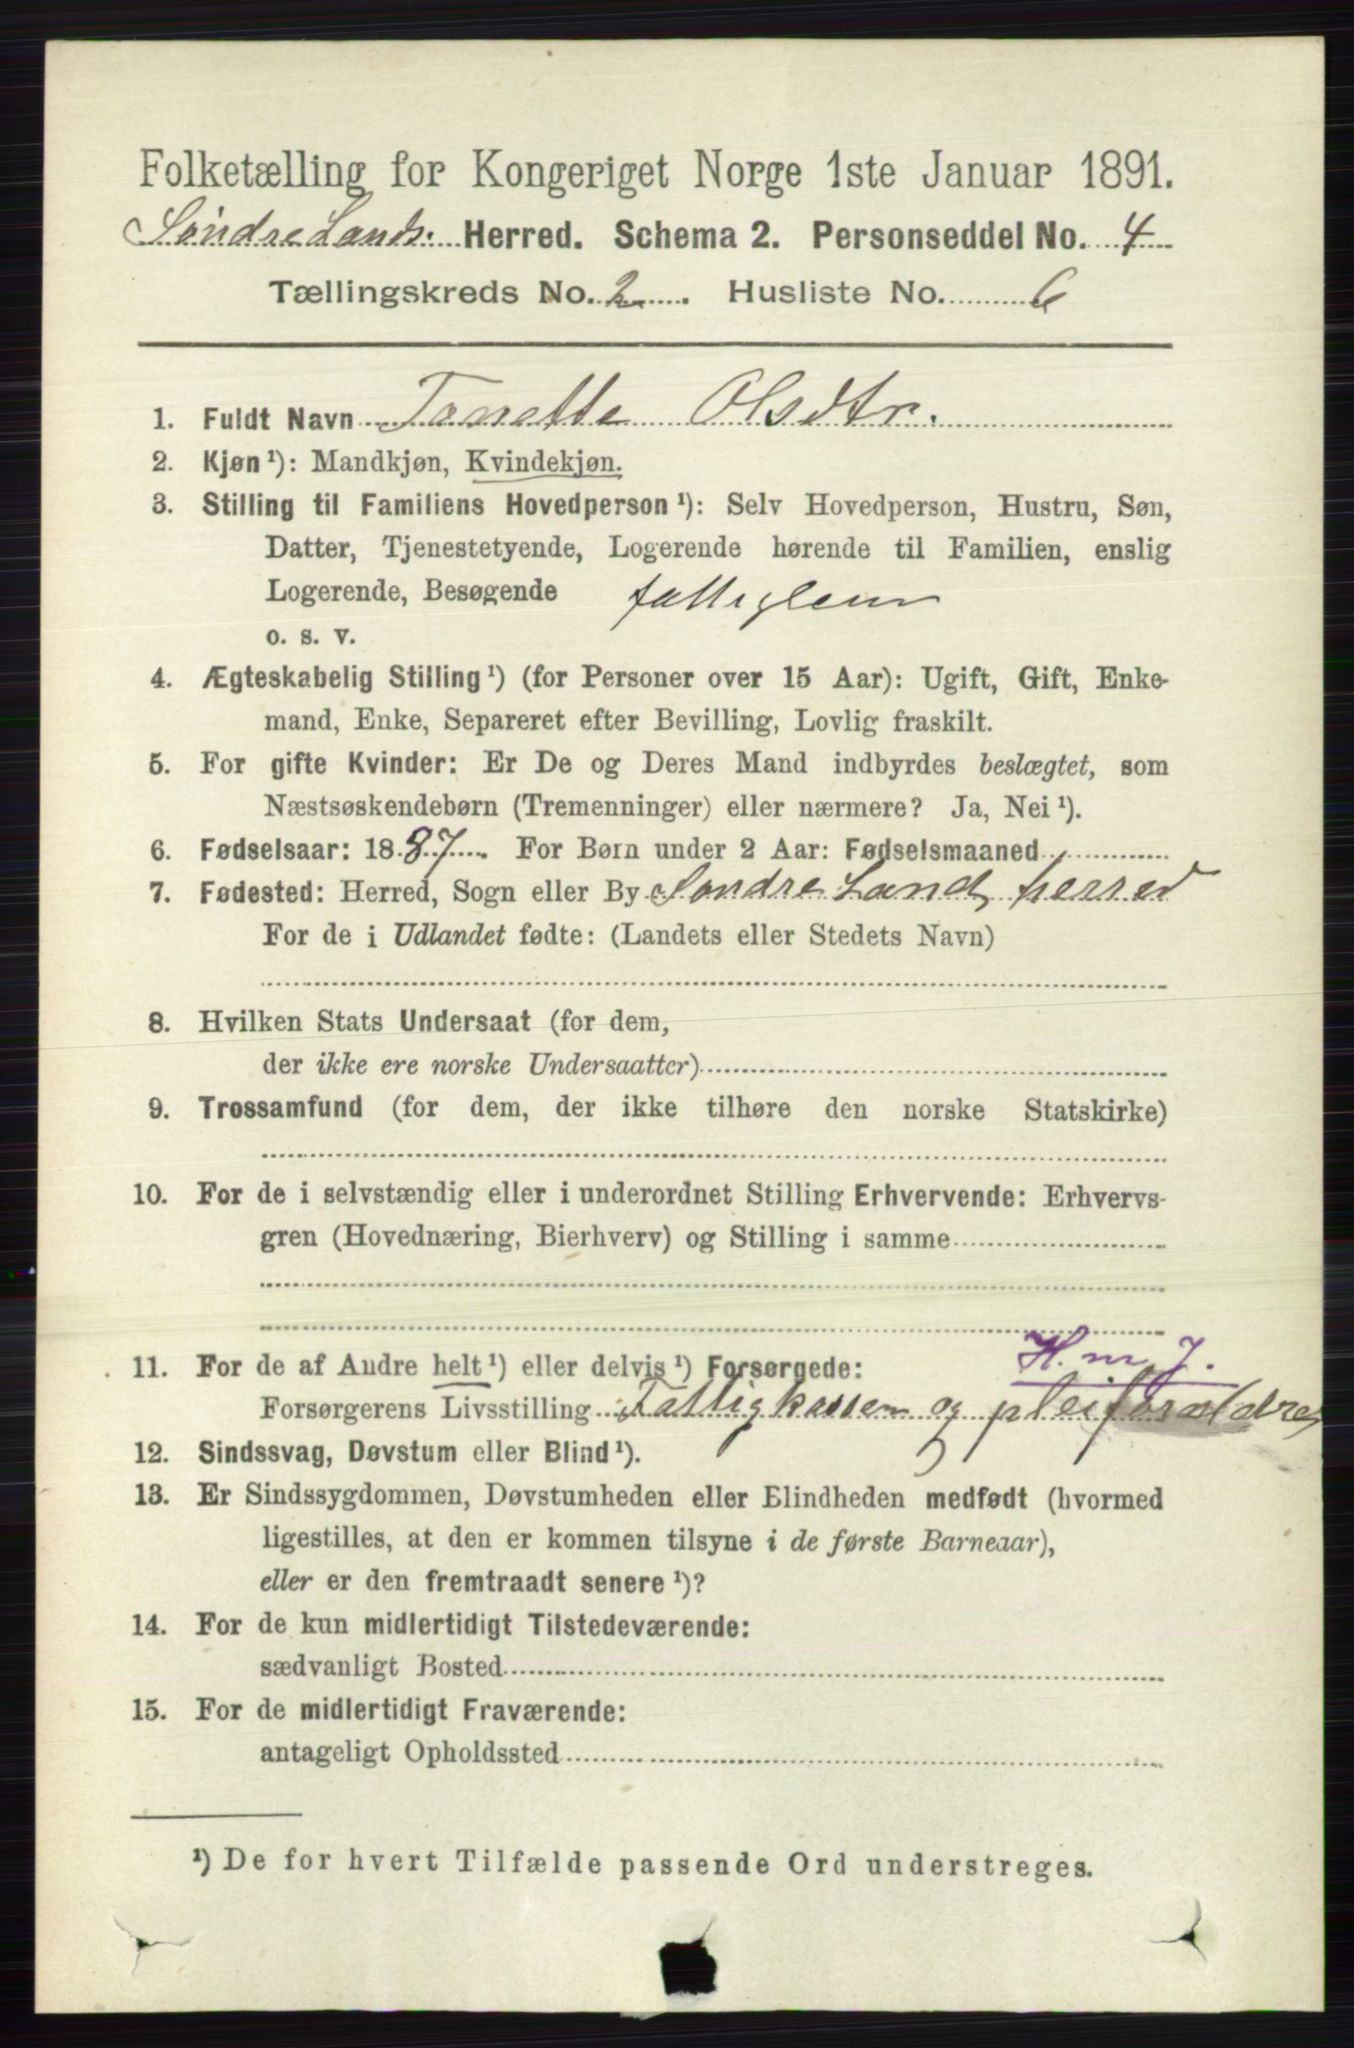 Folketælling for Kongeriget Norge 1ste Januar 1891.
Söndre Lands Herred. Schema 2. Personseddel No. 4
Tællingskreds No. 2. Husliste No. 6
1. Fuldt Navn Tonette Olsdtr.
2. Kjøn¹): Mandkjøn, Kvindekjøn.
3. Stilling til Familiens Hovedperson¹): Selv Hovedperson, Hustru, Søn,
Datter, Tjenestetyende, Logerende hørende til Familien, enslig
Logerende, Besøgende fattiglem
o. s. v.
4. Ægteskabelig Stilling¹) (for Personer over 15 Aar): Ugift, Gift, Enke-
mand, Enke, Separeret efter Bevilling, Lovlig fraskilt.
5. For gifte Kvinder: Er De og Deres Mand indbyrdes beslægtet, som
Næstsøskendebørn (Tremenninger) eller nærmere? Ja, Nei¹).
6. Fødselsaar: 1887. For Børn under 2 Aar: Fødselsmaaned
7. Fødested: Herred, Sogn eller By Söndre Land herred
For de i Udlandet fødte: (Landets eller Stedets Navn)
8. Hvilken Stats Undersaat (for dem,
der ikke ere norske Undersaatter)
9. Trossamfund (for dem, der ikke tilhøre den norske Statskirke)
10. For de i selvstændig eller i underordnet Stilling Erhvervende: Erhvervs-
gren (Hovednæring, Bierhverv) og Stilling i samme
H. m 7.
11. For de af Andre helt¹) eller delvis¹) Forsørgede:
Forsørgerens Livsstilling Fattigkassen og pleiforældres
12. Sindssvag, Døvstum eller Blind¹).
13. Er Sindssygdommen, Døvstumheden eller Blindheden medfødt (hvormed
ligestilles, at den er kommen tilsyne i de første Barneaar),
eller er den fremtraadt senere¹)?
14. For de kun midlertidigt Tilstedeværende:
sædvanligt Bosted
15. For de midlertidigt Fraværende:
antageligt Opholdssted
¹) De for hvert Tilfælde passende Ord understreges.